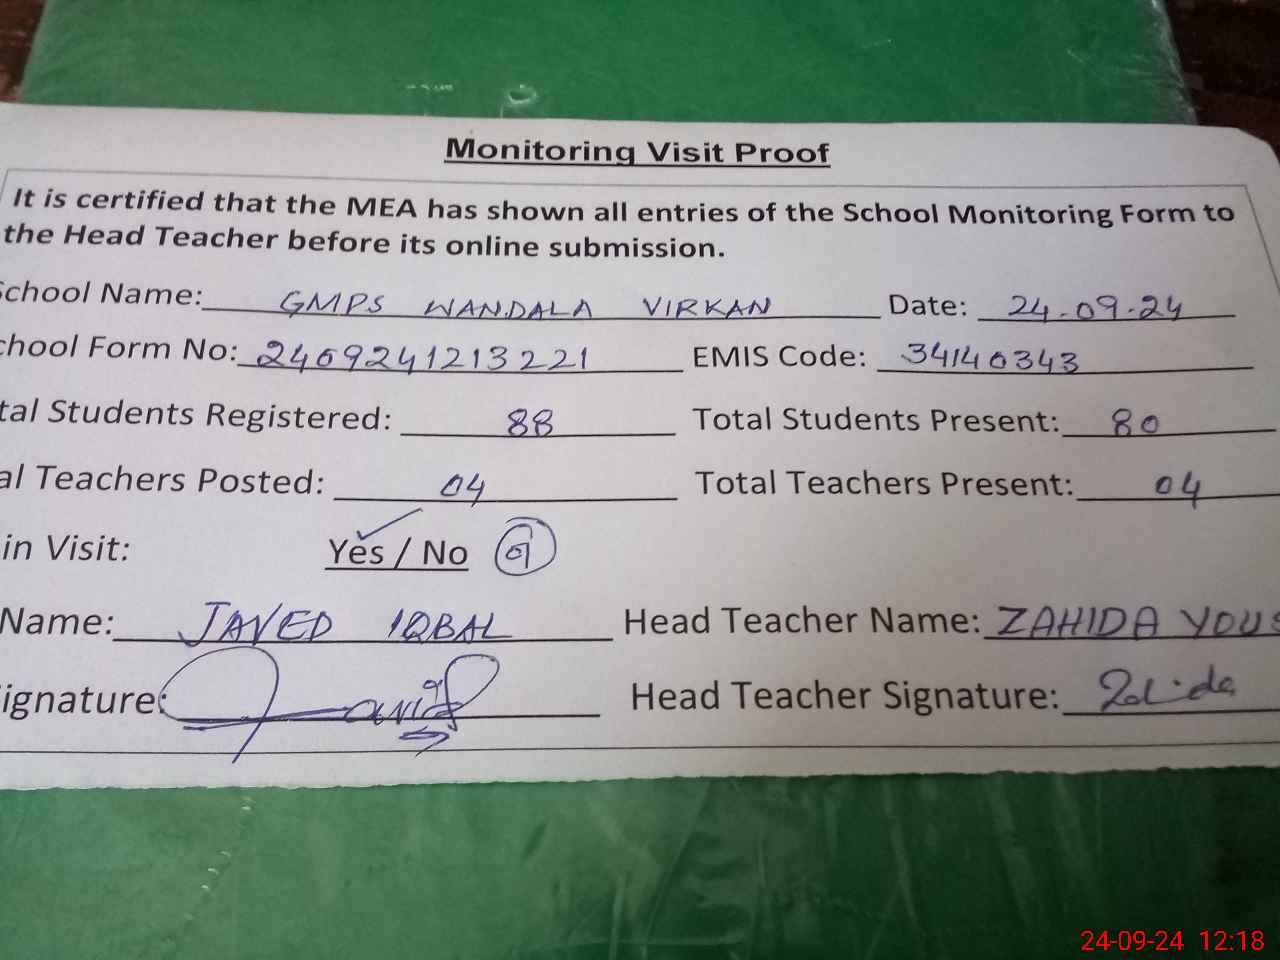 Monitoring Visit Proof
It is certified that the MEA has shown all entries of the School Monitoring Form to
the Head Teacher before its online submission.
School Name: GMPS WANDALA VIRKAN Date: 24-09-24
chool Form No: 2409241213221 EMIS Code: 34140343
tal Students Registered: 88 Total Students Present: 80
al Teachers Posted: 04 Total Teachers Present: 04
in Visit: Yes / No
Name: JAVED IQBAL Head Teacher Name: ZAHIDA YOUS
ignature: Head Teacher Signature:
24-09-24 12:18